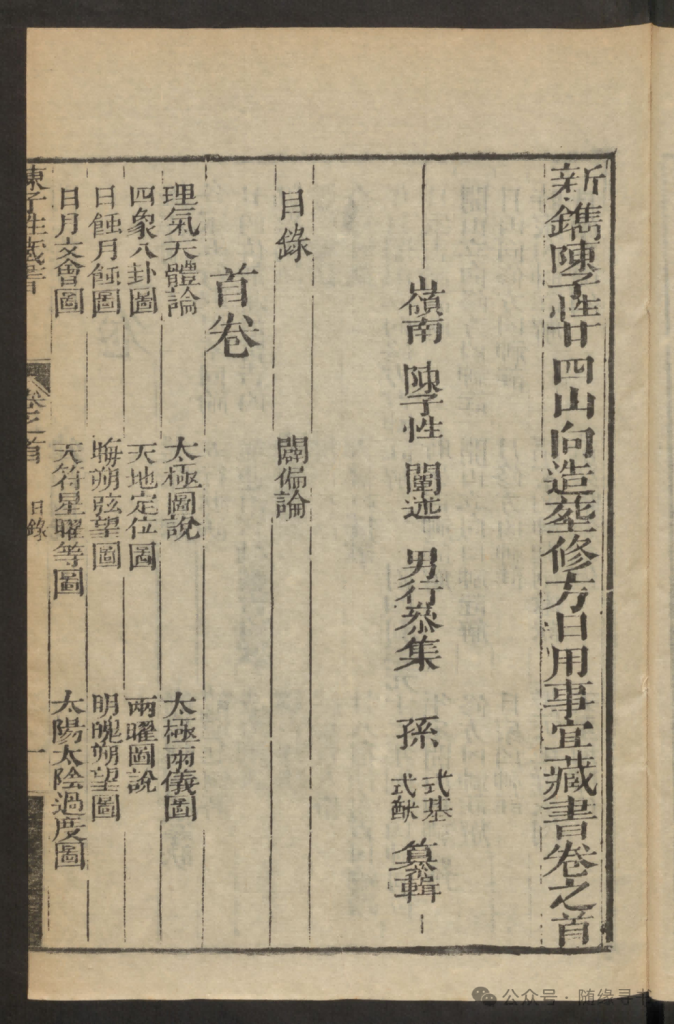 新鐫陳子性廿四山向造塟修方日用事宜藏書卷之首
嶺南 陳子性 闡述 男行恭集 孫 式基 式猷 纂輯
目錄 闢偏論
首卷
理氣天體論 太極圖說 太極兩儀圖
四象八卦圖 天地定位圖 兩曜圖說
日蝕月蝕圖 晦朔弦望圖 明魄朔望圖
日月交會圖 天符星曜等圖 太陽太陰過度圖
陳子性藏書 卷之首 目錄 一
公众号·随缘寻书